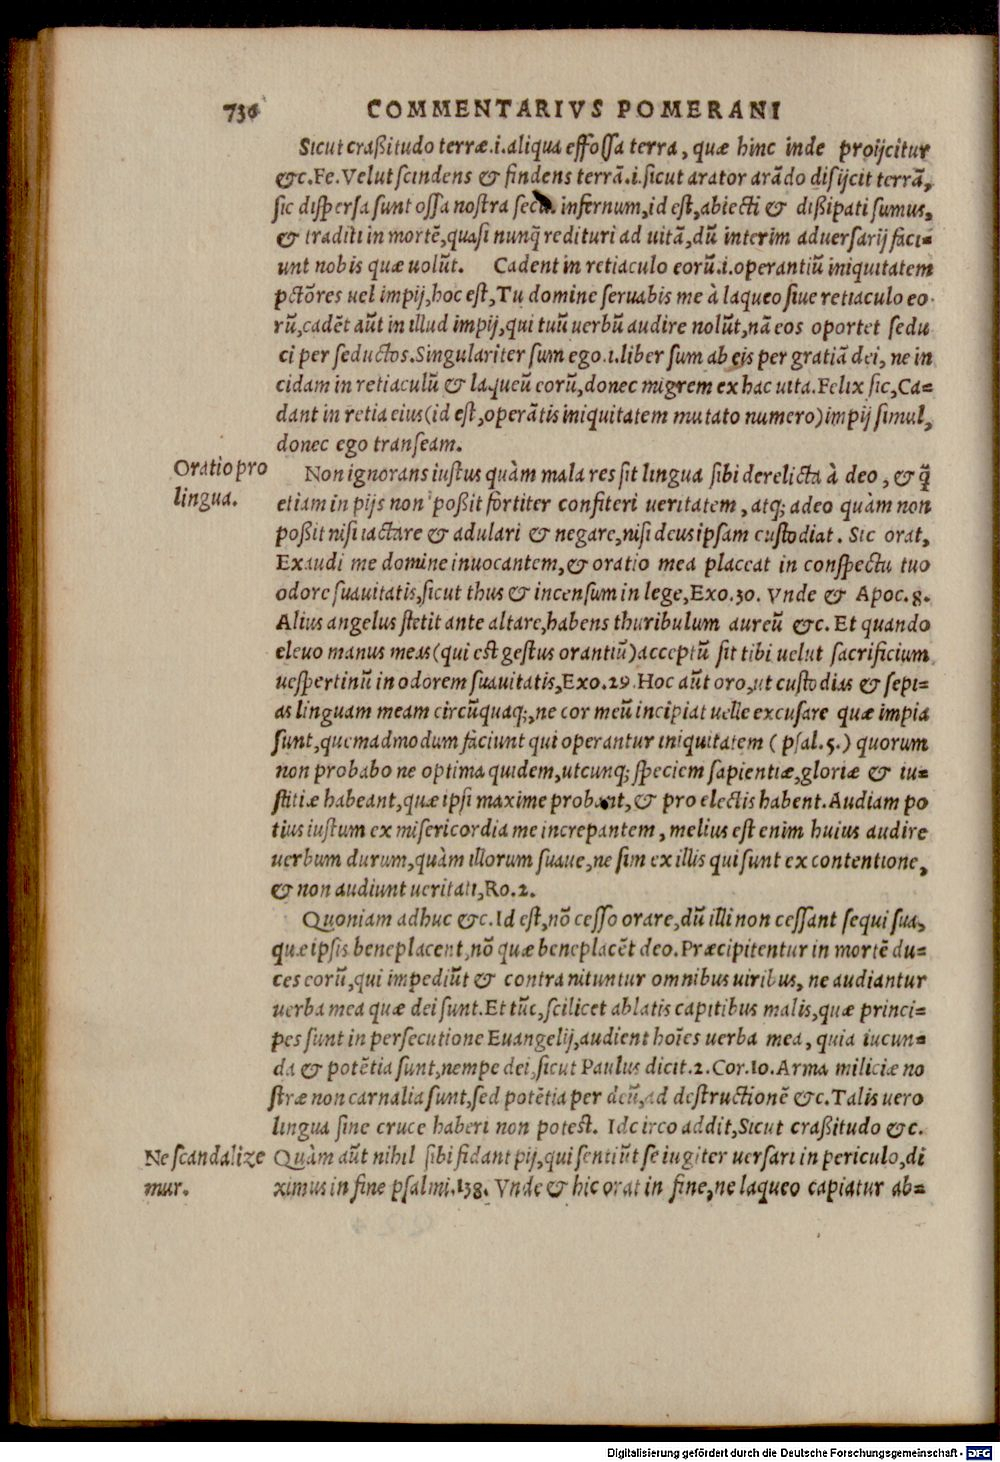 736 COMMENTARIVS POMERANI
Sicut craßitudo terræ.i.aliqua effossa terra, quæ hinc inde proijcitur
&c. Fe. Velut scindens & findens terrã.i.sicut arator arãdo disijcit terrã,
sic dispersa sunt ossa nostra secu. infernum, id est, abiecti & dißipati sumus,
& traditi in mortẽ, quasi nunq̃ redituri ad uitã, dũ interim aduersarij faci=
unt nobis quæ uolũt. Cadent in retiaculo eorũ.i.operantiũ iniquitatem
pctõres uel impij, hoc est, Tu domine seruabis me à laqueo siue retiaculo eo
rũ, cadẽt aũt in illud impij, qui tuũ uerbũ audire nolũt, nã eos oportet sedu
ci per seductos. Singulariter sum ego.i.liber sum ab eis per gratiã dei, ne in
cidam in retiaculũ & laqueũ eorũ, donec migrem ex hac uita. Felix sic, Ca=
dant in retia eius (id est, operãtis iniquitatem mutato numero) impij simul,
donec ego transeam.
Oratio pro
lingua.
Non ignorans iustus quàm mala res sit lingua sibi derelicta à deo, & q̃
etiam in pijs non poßit fortiter confiteri ueritatem, atq; adeo quàm non
poßit nisi iactare & adulari & negare, nisi deus ipsam custodiat. Sic orat,
Exaudi me domine inuocantem, & oratio mea placeat in conspectu tuo
odore suauitatis, sicut thus & incensum in lege, Exo.30. Vnde & Apoc.8.
Alius angelus stetit ante altare, habens thuribulum aureũ &c. Et quando
eleuo manus meas (qui est gestus orantiũ) acceptũ sit tibi uelut sacrificium
uespertinũ in odorem suauitatis, Exo.29. Hoc aũt oro, ut custodias & sepi=
as linguam meam circũquaq;, ne cor meũ incipiat uelle excusare quæ impia
sunt, quemadmodum faciunt qui operantur iniquitatem (psal.5.) quorum
non probabo ne optima quidem, utcunq; speciem sapientiæ, gloriæ & iu=
stitiæ habeant, quæ ipsi maxime probant, & pro electis habent. Audiam po
tius iustum ex misericordia me increpantem, melius est enim huius audire
uerbum durum, quàm illorum suaue, ne sim ex illis qui sunt ex contentione,
& non audiunt ueritati, Ro.2.
Quoniam adhuc &c. Id est, nõ cesso orare, dũ illi non cessant sequi sua,
quæ ipsis beneplacent, nõ quæ beneplacẽt deo. Præcipitentur in mortẽ du=
ces eorũ, qui impediũt & contra nituntur omnibus uiribus, ne audiantur
uerba mea quæ dei sunt. Et tũc, scilicet ablatis capitibus malis, quæ princi=
pes sunt in persecutione Euangelij, audient hoĩes uerba mea, quia iucun=
da & potẽtia sunt, nempe dei, sicut Paulus dicit.2.Cor.10. Arma miliciæ no
stræ non carnalia sunt, sed potẽtia per deũ, ad destructionẽ &c. Talis uero
lingua sine cruce haberi non potest. Idcirco addit, Sicut craßitudo &c.
Ne scandalize
mur.
Quàm aũt nihil sibi fidant pij, qui sentiũt se iugiter uersari in periculo, di
ximus in fine psalmi.138. Vnde & hic orat in fine, ne laqueo capiatur ab=
Digitalisierung gefördert durch die Deutsche Forschungsgemeinschaft - DFG